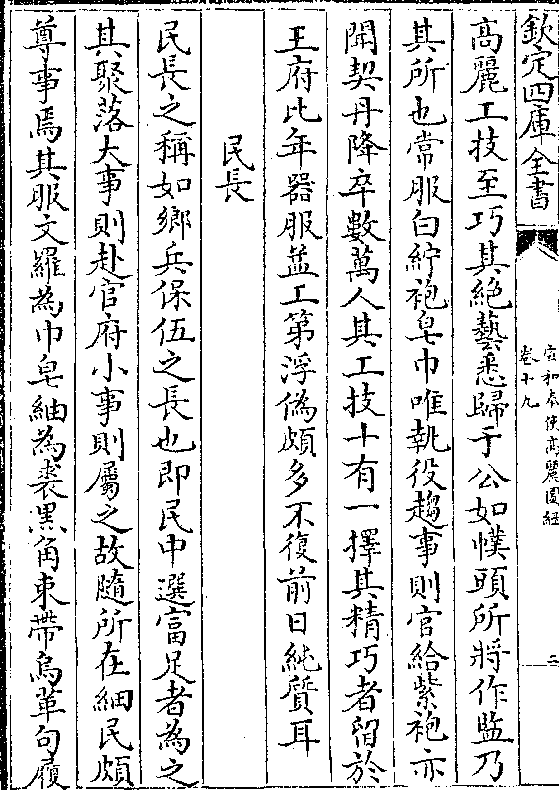 欽定四庫全書
宣和奉使髙麗圖經
卷十九
二
髙麗工技至巧其絶藝悉歸于公如幞頭所將作監乃
其所也常服白紵袍皂巾唯執役趨事則官給紫袍亦
聞契丹降卒數萬人其工技十有一擇其精巧者留於
王府比年器服益工第浮偽頗多不復前日純質耳
民長
民長之稱如鄉兵保伍之長也即民中選富足者為之
其聚落大事則赴官府小事則屬之故隨所在細民頗
尊事焉其服文羅為巾皂紬為裘黒角束帶烏革句履